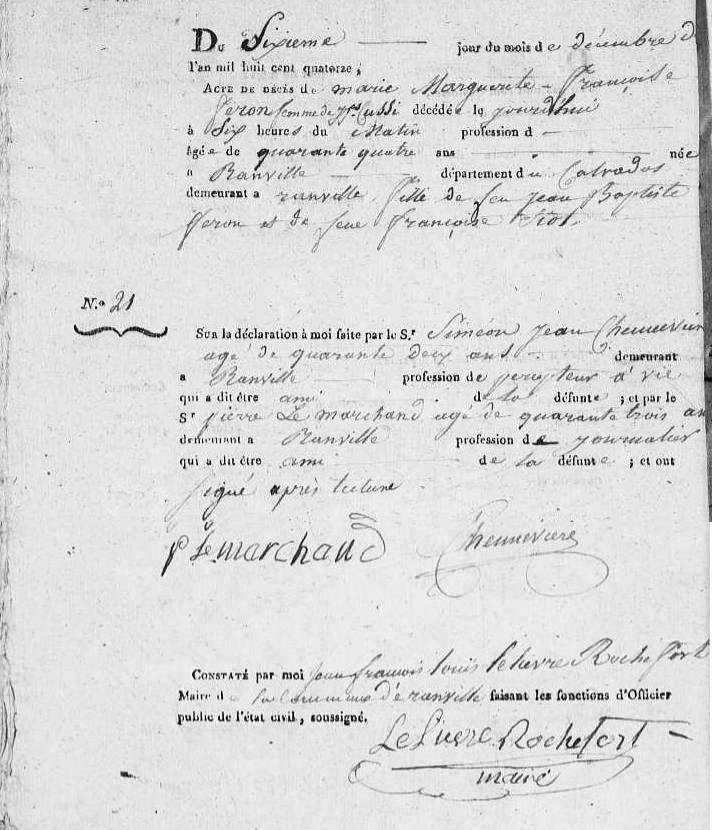 Du Sixieme jour du mois de décembre d
l'an mil huit cent quatorze ;
Acte de décès de marie Marguerite - Françoise
feron femme de Cussi décédée le jourd'hui
à Six heures du Matin profession d
âgée de quarante quatre ans née
a Ranville département du Calvados
demeurant a ranville fille de feu jean Baptiste
feron et de feue françoise
N.º 21
Sur la déclaration à moi faite par le S.r Siméon jean Chennevier
agé de quarante deux ans demeurant
a Ranville profession de percepteur à vie
qui a dit être ami de la défunte ; et par le
Sr pierre Le marchand agé de quarante trois an
demeurant a Ranville profession de journalier
qui a dit être ami de la défunte ; et ont
signé après lecture
p Le marchand Chennevière
Constaté par moi jean françois louis Lelievre Rochefort
Maire de la Commune de ranville faisant les fonctions d'Officier
public de l'état civil, soussigné.
LeLievre Rochefort
maire